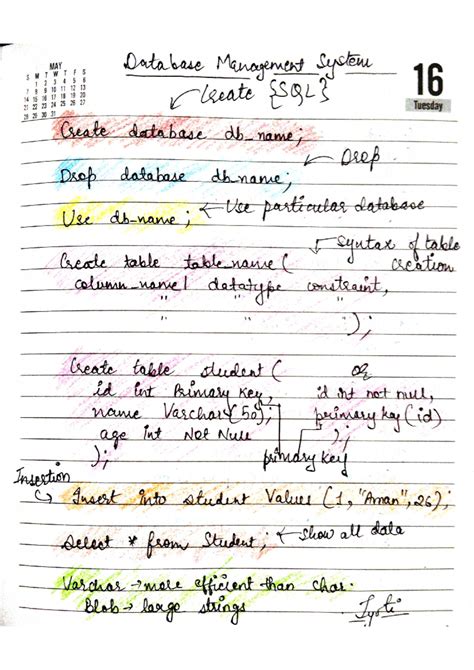 MAY
S M T W T F S
1 2 3 4 5 6
7 8 9 10 11 12 13
14 15 16 17 18 19 20
21 22 23 24 25 26 27
28 29 30 31
16
Tuesday
Database Management System
Create {SQL}
Create database db_name;
Drop
Drop database db_name;
Use db_name; ← Use particular database
Syntax of table creation
Create table table_name (
column_name1 datatype constraint,
" " "
" " "
);
Create table student (
id int Primary Key,
name Varchar(50),
age int Not Null
);
or
id int not null,
primary key (id)
);
primary key
Insertion
Insert into student Values (1, "Aman", 26);
Select * from Student; ← Show all data
Varchar → more efficient than char.
Blob → large strings
Jyoti